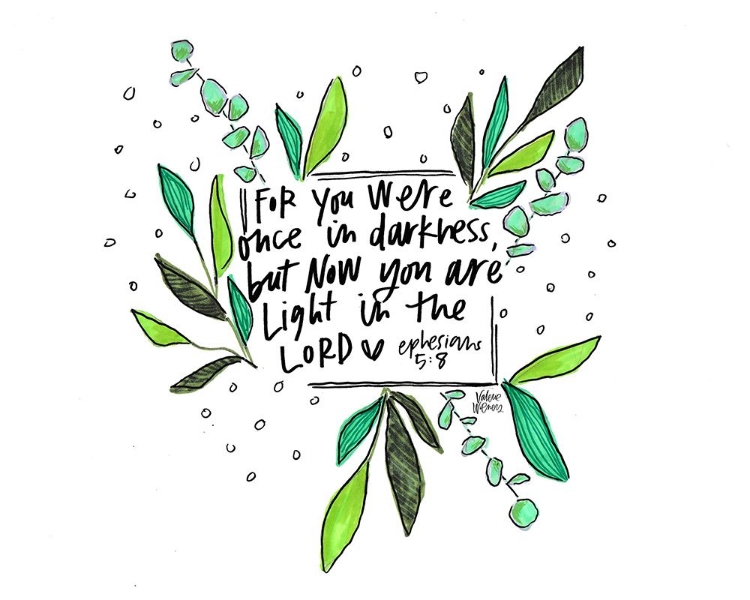 FOR you were
once in darkness,
but NOW you are
Light in the
LORD
ephesians
5:8
Valerie
Wieners